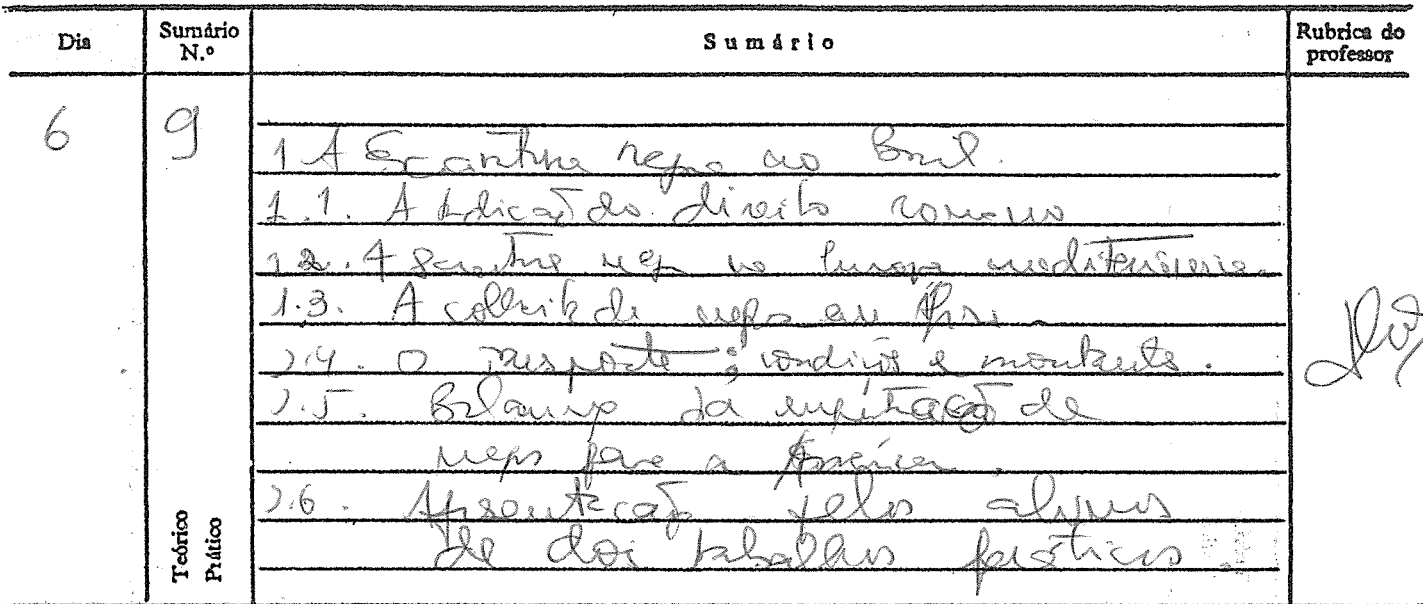 Dia
Sumário N.º
Sumário
Rubrica do professor
6
9
1 A Escravatura negra no Brasil.
1.1. A tradição do direito romano
1.2. A escravatura negra na Europa mediterrânica.
1.3. A colheita de negros em África
1.4. O transporte: condições e montante.
1.5. Balanço da importação de
negros para a América.
1.6. Apresentação pelos alunos
de dois trabalhos práticos.
Teórico
Prático